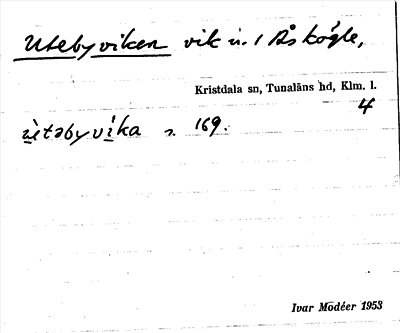 Utebyviken vik i n. l Åsko̊gle,
Kristdala sn, Tunaläns hd, Klm. l.
4
ùtəbyvíka s. 169.
Ivar Modéer 1953